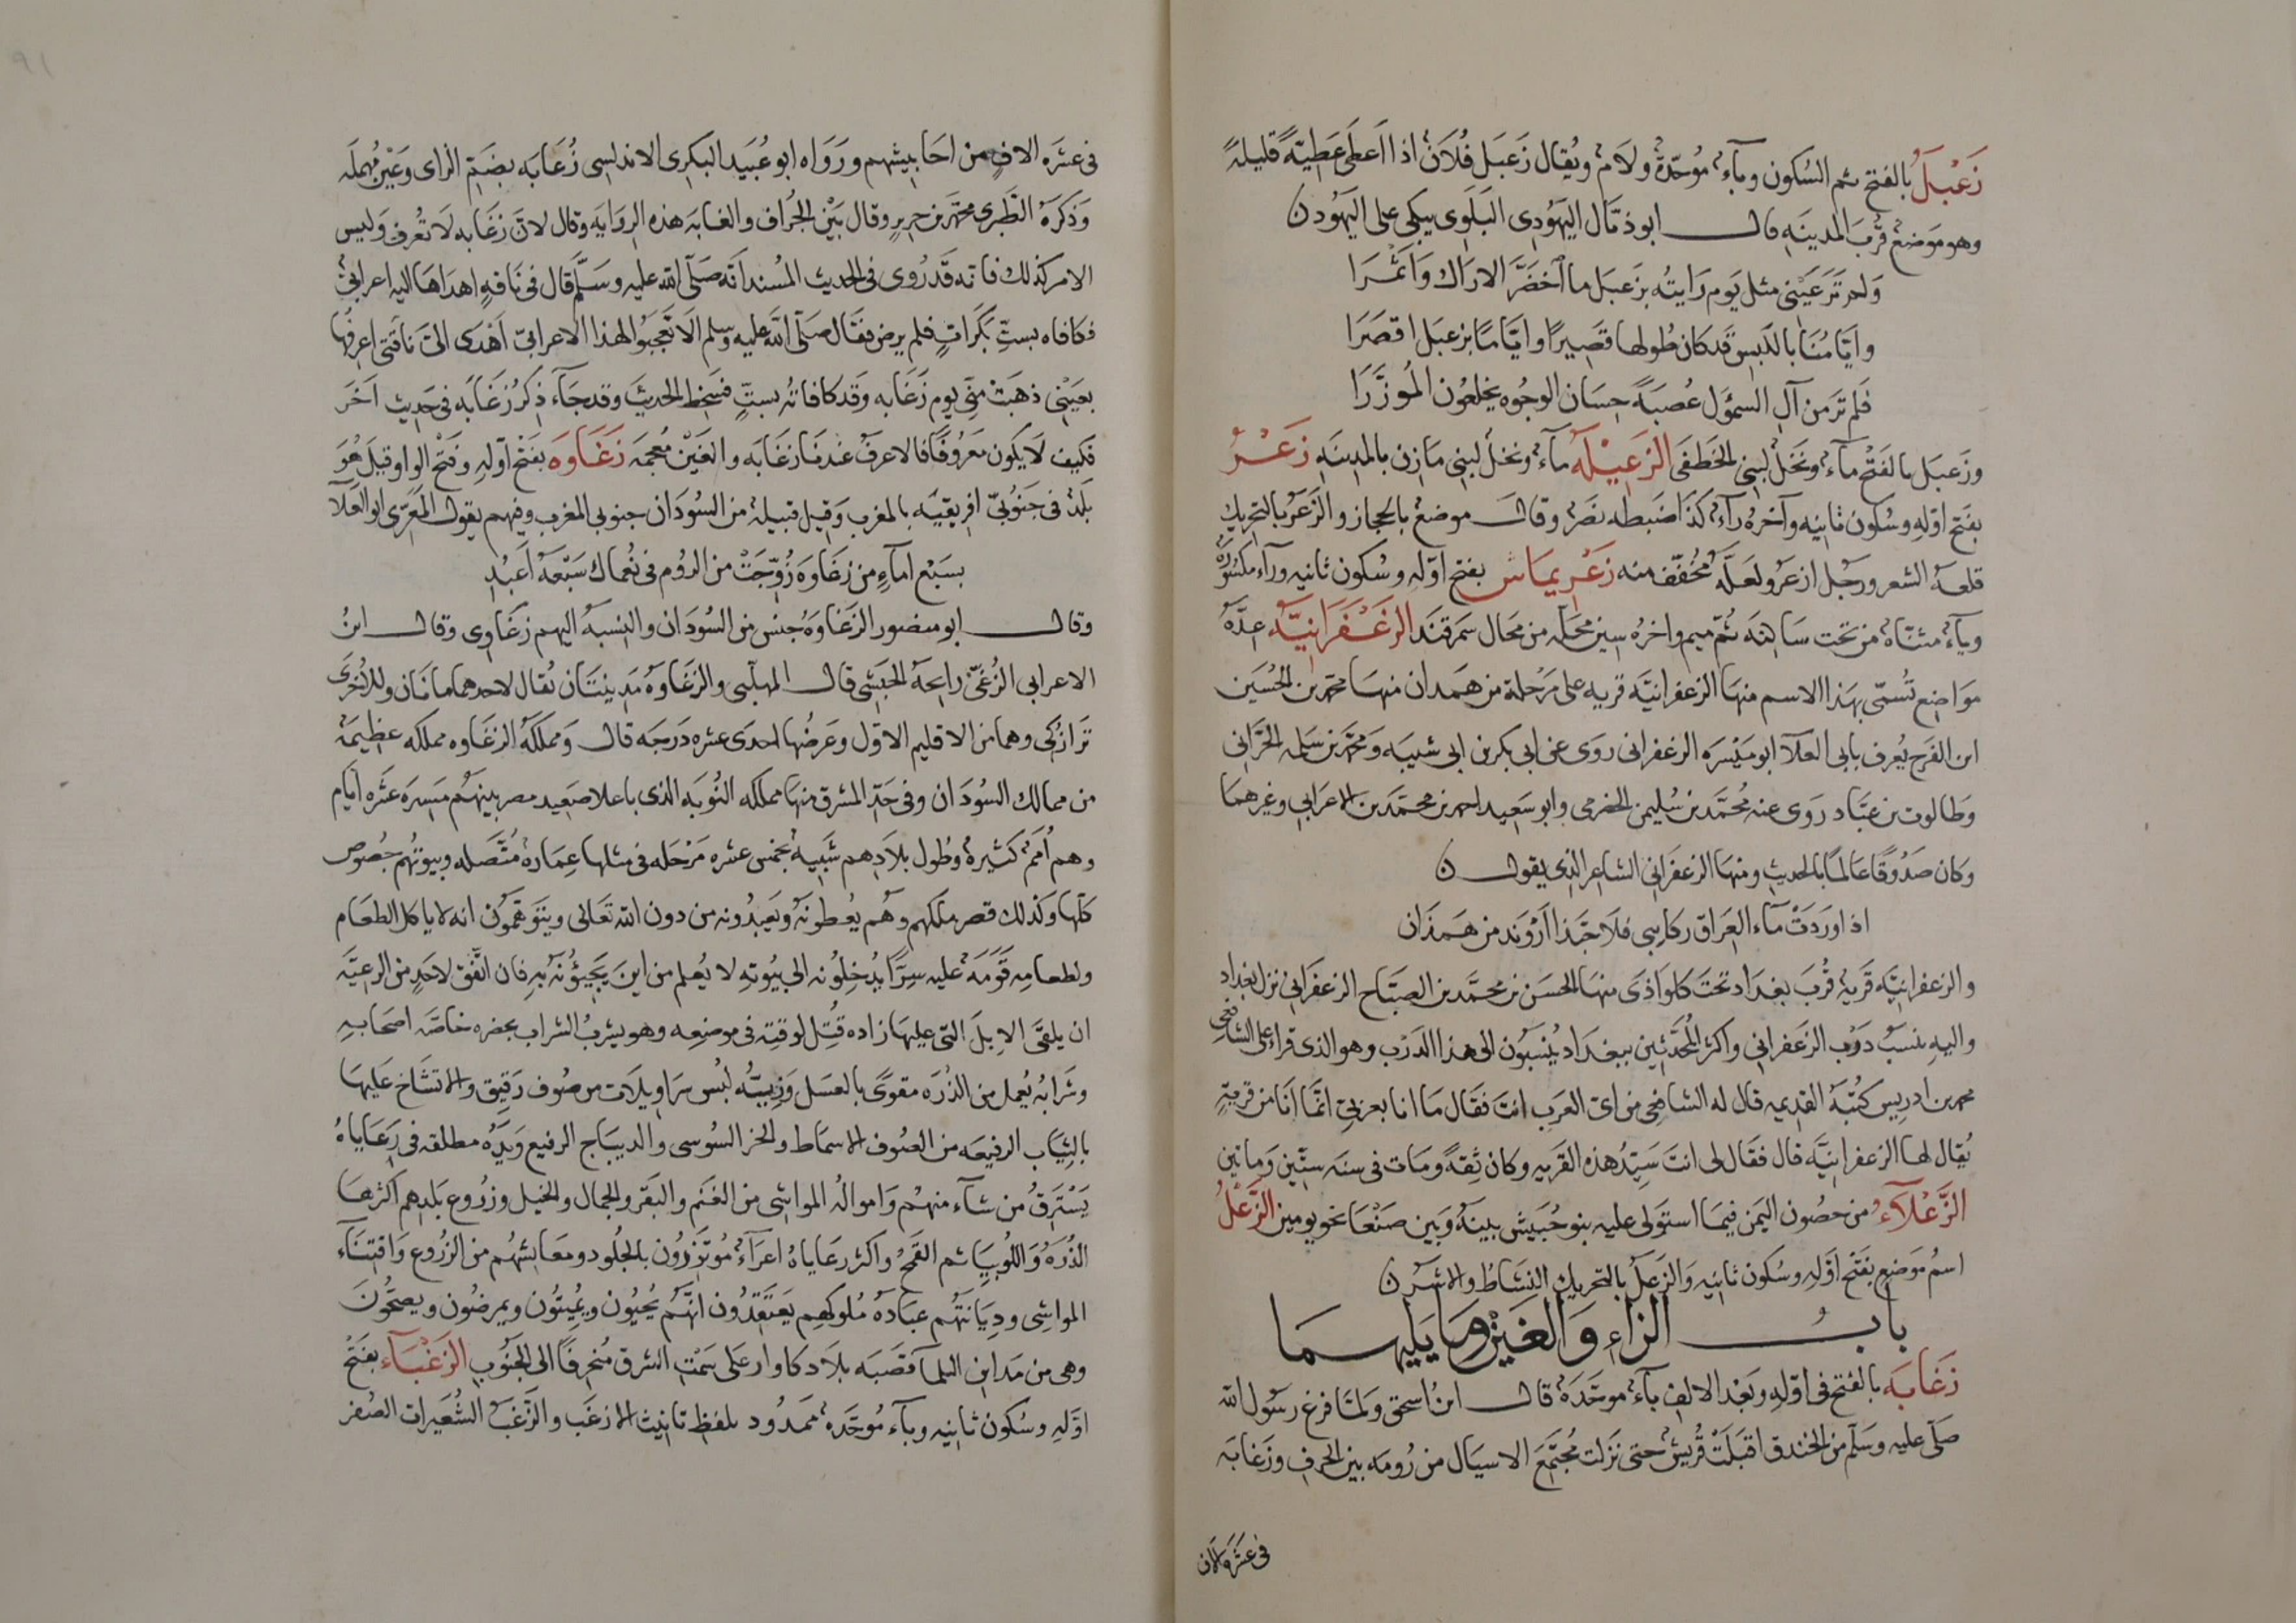 زَعْبَلُ بالفتح ثم السكون وبآء مُوحّدة ولام ويُقال زَعبَل فُلَان اذا اَعطى عَطِيّةً قليلةً
وهو مَوضعٌ قُربَ المدينَه قال ابو ذيّال اليَهُودى البَلَوى يبكى على اليَهُود ن
وَلم تَرَ عَيْنى مثل يَوم رَايتُه بزَعبَل ما اَخضَرَّ الاراك وَاَثمَرَا
وايّامُنَا بالكبس قد كان طُولها قَصِيرًا وايّامًا بزعبَل اقصَرَا
فَلم تَر من آل السموَل عُصبَةً حِسَان الوجُوه يخلعُون المُوزَّرَا
وزَعبَل بالفَتْح مآءٌ ونَخلٌ لبنى الخَطفَى الزعبْلَهُ مآءٌ ونخلٌ لبنى مَازن بالمدينَه زَعْرُ
بفَتح اوّلهِ وسُكون ثانيه وآخرُه رآءٌ كذَا ضَبطه نَصْر وقالَ موضعٌ بالحجاز والزَعَر بالتحريك
قلهُ الشعر ورجُل ازعَر ولعَلّه مُخفّف منه زَعْرِيماش بفتح اوّله وسُكون ثانيه ورآء مكسُورَة
وياءٌ مثنّاهٌ من تحت سَاكنَه ثُمّ ميم واخرُه سين محَلّه من محَال سَمَرقَند الزَعْفَرَانيَّه عِدَّهُ
مَوَاضِع تُسمّى بهَذا الاسم منهَا الزعفرانيَّه قريه على مَرْحلة من همَدان منهَا محمّد بن الحُسَين
ابن الفرَج يُعرف بابى العلآ ابو مَيْسَرَه الزعفرانى روَى عن ابى بكر بن ابى شيبَه ومحمّد بن سَلمه الحرّانى
وَطالوت بن عبّاد روَى عنه مُحمَّد بن سُليمن الحضرمى وابو سَعِيد احمد بن محمَّد بن الاعرَابي وغيرهما
وكان صَدُوقًا عَالمًا بالحديثِ ومنهَا الزعفَرَانى الشاعِر الذى يقول ن
اذا وَرَدَتْ مآء العِرَاق ركاَبى فلَا حَبّذا اَرْوَند من هَمَذَان
والزعفرانيَّه قَريهٌ قُربَ بغدَاد تحتَ كلواذَى منهَا الحسَن بن محمَّد بن الصبّاح الزعفَرَانى نزل بغدَاد
واليهِ ينسَبُ دَرْب الزعفرانى واكثرُ المُحَدّثين ببغدَاد يُنسَبُون الى هذا الدَرْب وهو الذى قراء على الشافعى
محمد بن ادريس كتُبَهُ القديمه قال له الشافِعى من اىّ العَرَب انتَ فقَال مَا انا بعربىّ انّمَا انَا من قريةٍ
يُقال لهَا الزعفرانيَّه قال فقَال لى انتَ سَيّدُ هذه القريه وكان ثِقهً ومَات فى سنَه ستّين وَماتين
الزَّعْلآءُ من حصُون اليَمن فيمَا استَولى عليه بنو حُبَيش بينهُ وَبين صَنْعَا نحو يومين الزَّعْلُ
اسمُ مَوضعٍ بفَتح اوّلهِ وسُكون ثانيِه وَالزَعَلُ بالتحريكِ النشَاطُ والاشَر ن
بابُ الزاءِ وَالغَيْن ومَا يَليهمَا
زَغَابَه بالفتح فى اوّلهِ وبَعْد الالفِ بآءٌ موحَّدَهٌ قال ابنُ اسحق وَلمّا فرغ رَسُول الله
صَلّى عليه وسَلّم من الخندق اقبَلَتْ قُريشٌ حتى نَزَلت مُجتَمَعَ الاسيَال من رُومَه بين الجرف وزَغابَه
فى عشرَه الاف
فى عشَره الافٍ من احَابيشهم وروَاه ابو عُبَيد البكرى الاندلسى زُغَابه بضَمّ الزاى وعَيْن مُهملَه
وَذكَرَهُ الطَبَرى محمّد بن جرير وقال بَيْن الجُرَاف والغابَه هذه الروَايَه وقال لانّ زغَابه لَا تُعرف وَليس
الامر كذلك فانّه قد رُوى فى الحديث المُسند انّه صَلّى الله عليه وسَلّم قال فى نَاقهٍ اهدَاهَا اليه اعرابىٌّ
فكافاه بستِّ بَكَراتٍ فلم يرض فقَال صَلّى الله عليه وسلم الَا تَعجَبُوا لهذا الاعرابىّ اَهْدَى الىّ نَاقَتى اعرِفُها
بعَيْنى ذهَبَتْ منّى يوم زَغَابه وَقد كافاتُه بستٍّ فسَخِط الحديثَ وقد جَآءَ ذِكرُ زغَابَه فى حَدِيث آخَرَ
فكيف لَا يَكون مَعرُوفًا فالاعرفُ عندنَا زغَابَه والغَيْن مُعجَمَه زَغَاوَه بفَتْح اوّلهِ وفَتْح الواو قيل هُوَ
بَلدٌ فى جَنُوبىّ افريقيّه بالمغرب وَقيل قبيلهٌ من السُودَان جنوبى المغرب وفيهم يقول المَعَرّى ابو العَلَآ
بسَبْع امآءٍ من زغَاوَه زُوّجَتْ من الرُوم فى نُعمَاك سَبْعَهُ اَعبُدِ
وقال ابو منصور الزغَاوَهُ جنس من السُودَان والنِسبَهُ اليهم زغَاوى وقال ابنُ
الاعرابى الزغىّ رايحَهُ الحَبَشى قال المهلّبى والزَغَاوَهُ مَدينتَان يُقال لاحدهما مانَان وللاُخرَى
تَرازكى وهما من الاقليم الاوّل وعَرضُهَا احدَى عشره دَرَجَه قال وَمملكَهُ الزغَاوه مملكَه عظيمَهٌ
من ممالك السُودَان وفى حَدّ المشرق منهَا مملكه النُوبَه الذى باعلا صَعِيد مصر بينهُم مَسِيرَه عَشَره ايّام
وهم اُمَمٌ كثيرهٌ وطُول بلَادهم شَبيهٌ بخمس عشره مَرْحله فى مثلها عِمَارهٌ مُتّصله وبيوتُهم جُصُوص
كلّها وكذلك قصر ملكهم وهُم يُعظمُونَهُ ويَعبدُونه من دون الله تعَالى ويتَوَهّمُون انه لا ياكل الطعَام
ولطعامه قَوَمَهٌ عليه سِرًّا يُدخلُونه الى بيُوتهِ لا يُعلم من اينَ يَجيئونَهُ بهِ فان اتّفَق لاحَدٍ من الرعيَّه
ان يلقَى الابلَ التى عليهَا زاده قُتِل لوقتِه فى موضعِه وهو يشربُ الشراب بحضرهِ خاصَّه اصحَابِهِ
وشَرابُه يُعمل من الذُرَه مقوّىً بالعسَل وَزيُّه لبُس سرَاويلَات من صُوف رَقيق والاتشَاخ عَليهَا
بالثيَاب الرفيعَه من الصُوف الاسمَاط والخز السُوسى والديبَاج الرفيع وَيَدُه مطلقه فى رعَايَاهُ
يَسْتَرِقُ من شآء منهُم وَاموالهُ المواشى من الغنَم والبَقَر والجمال والخيل وزرُوع بلَدهم اكثرهَا
الذُرَهُ وَاللُّوبيَا ثم القَمحُ واكثر رعَاياهُ اعرَآءٌ مُوتزرُون بالجلُود ومعَايشهُم من الزرُوع وَاقتنَآء
المواشى ودِيَانتُهُم عبَادَهُ ملُوكهِم يَعتَقدُون انّهم يُحيُون ويُميتُون ويمرضُون ويصحُّونَ
وهى من مَداين البلمآ قصَبَه بلاد كاوار على سَمْتِ الشرق مُنحرفًا الى الجَنُوب الزَغْبَآء بفَتْح
اوّلهِ وسُكون ثانيه وبآءٍ مُوحَّده ممدُود بلفظ تانيث الازغَب والزغَبُ الشُعَيرات الصُفر